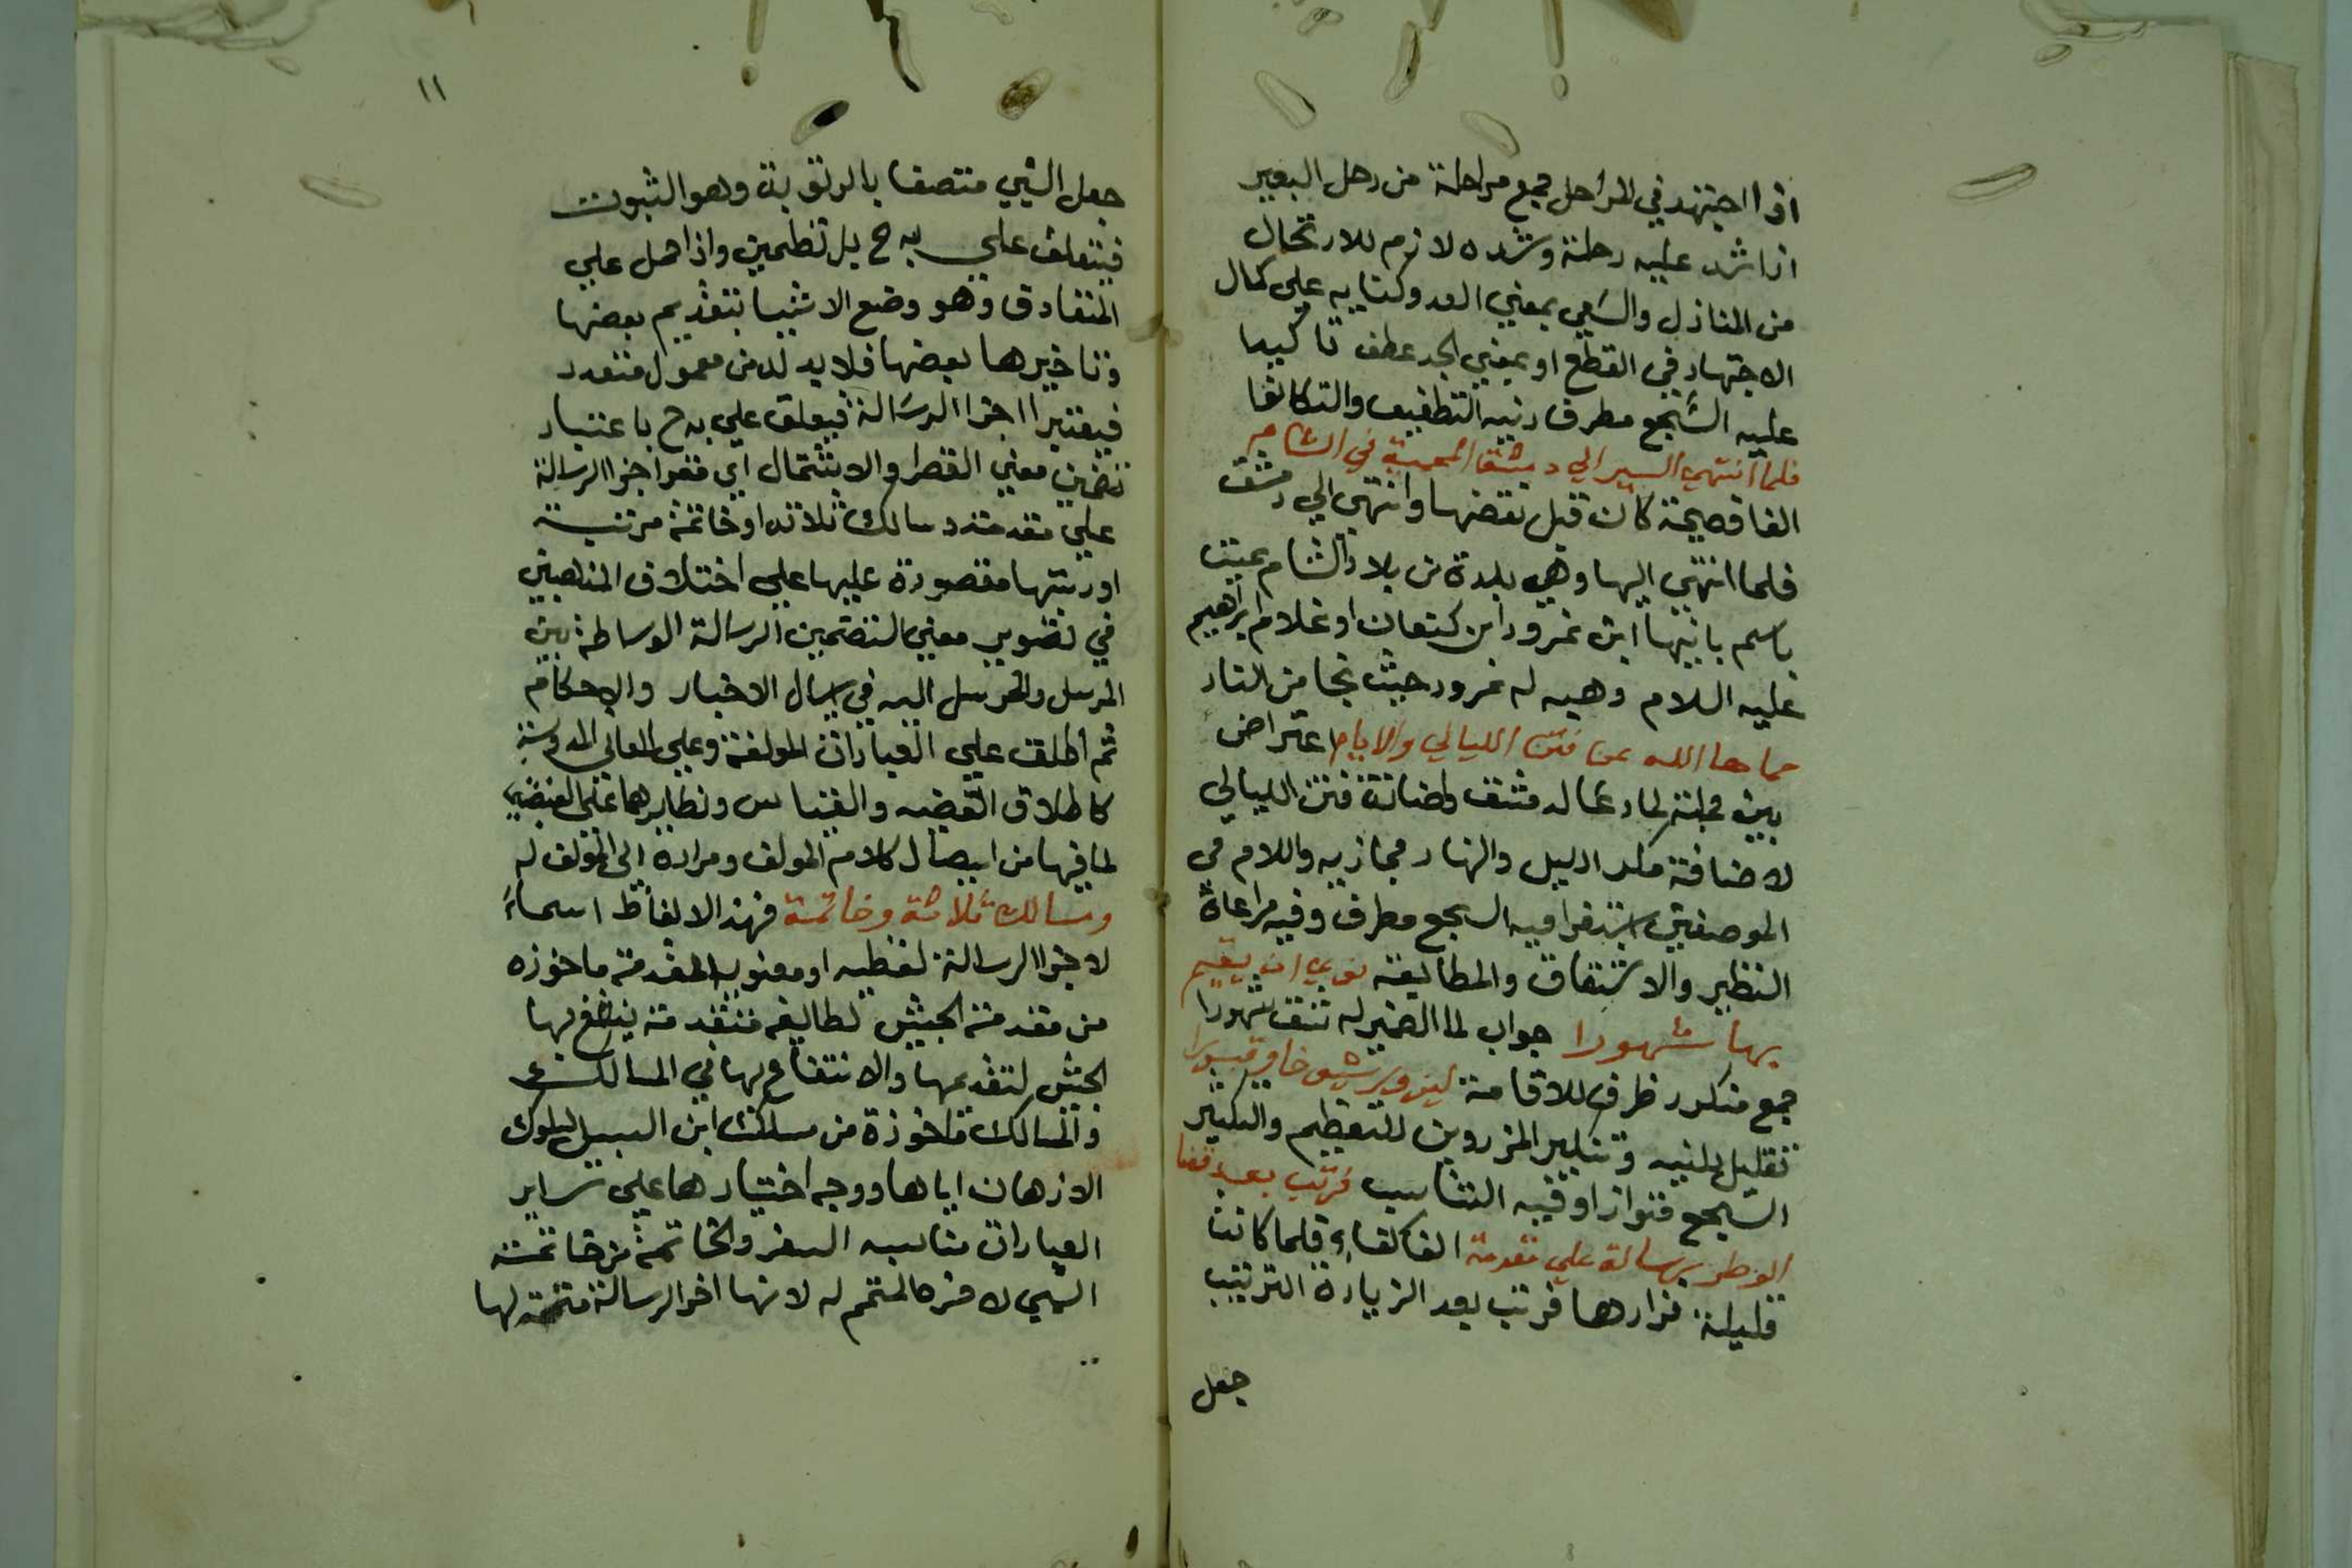 اذا اجتهد في المراحل جمع مرحلة من رحل البعير
اذا شد عليه رحلة وشده لازم للارتحال
من المنازل والسعي بمعني العدو كنايه علي كمال
الاجتهاد في القطع او بمعني الجد عطف تاكيدا
عليه السجع مطرف
فلما انتهي السير الي دمشق المحمية في الشام
الفا فصيحة كان قيل نقضها وانتهي الي دمشق
فلما انتهي اليها وهي بلدة من بلاد الشام سميت
باسم بانيها ابن نمرود ابن كنعان او غلام ابراهيم
عليه السلام وهبه له نمرود حيث نجا من النار
حماها الله عن فتن الليالي والايام اعتراض
بين جملتي لما دعا له فتن الليالي
لاضافة مكر الليل والنهار مجازيه واللام في
الموضعين السجع مطرف وفيه مراعاة
النظير والاشتقاق والمطابقة نوي ان يقيم
بها شهورا جواب لما الضمير له شهورا
جمع منكور ظرف للاقامة ليزور
تقليل وتنكير المزروين للتعظيم والتكثير
السجع متوازا وفيه التناسب فرتب بعد قضا
الوطر رسالة علي مقدمة الفا كفاء فلما كانت
قليلة فزارها فرتب بعد الزيارة الترتيب
جعل
١١
جعل الشي متصفا بالرتوبة وهو الثبوت
فيتعلق علي به ح بل تضمين واذا حمل علي
المتعارف وهو وضع الاشيا بتقديم بعضها
وتاخيرها بعضها فلا بد له من معمول متعدد
فيعتبر اجزا الرسالة فيعلق علي به ح باعتبار
تضمين معني القصر والاشتمال اي فعل اجزا الرسالة
علي مقدمة ومسالك ثلاثة وخاتمة مرتبة
او رتبتها مقصورة عليها علي اختلاف المذهبين
في تصوير معني التضمين الرسالة الوساطة بين
المرسل والمرسل اليه في ايصال الاخبار والاحكام
ثم اطلق علي العبارات المولفة وعلي المعاني المدونة
كاطلاق القضيه والقياس ونظايرهما علي
لما فيها من ايصال كلام المولف ومراده الي المولف له
ومسالك ثلاثة وخاتمة فهذه الالفاظ اسماء
لاجزا الرسالة لفظيه او معنويه المقدمة ماخوذه
من مقدمة الجيش لطايفه متقدمة ينتفع بها
الجيش لتقدمها والانتفاع بها في المسالك
والمسالك ماخوذة من مسلك ابن السبيل لسلوك
الاذهان اياها ووجه اختيارها علي ساير
العبارات مناسبه السفر والخاتمة من خاتمة
الشي لاخره المتمم له لانها اخر الرسالة متممة لها